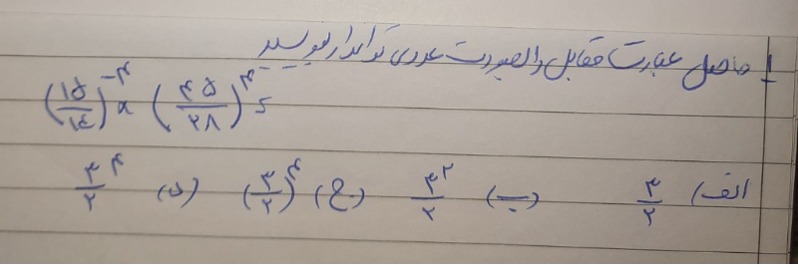 ۱ حاصل عبارت مقابل را بصورت عددی تواندار بنویسید
(۱۵/۱۴)^-۴ × (۴۵/۲۸)^۴ =
الف) ۳/۲ ب) ۳^۲/۲ ج) (۳/۲)^۴ د) ۳^۴/۲